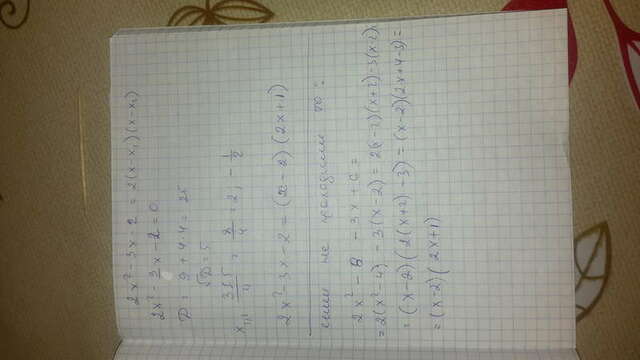 2x² - 3x - 2 = 2(x - x₁)(x - x₂)
2x² - 3x - 2 = 0
D = 9 + 4·4 = 25
√D = 5
x₁,₂ = (3±5)/4 = 8/4 = 2, -1/2
2x² - 3x - 2 = (x - 2)(2x + 1)
если не проходили то:
2x² - 8 - 3x + 6 =
= 2(x² - 4) - 3(x - 2) = 2(x - 2)(x + 2) - 3(x - 2)
= (x - 2)(2(x + 2) - 3) = (x - 2)(2x + 4 - 3) =
= (x - 2)(2x + 1)